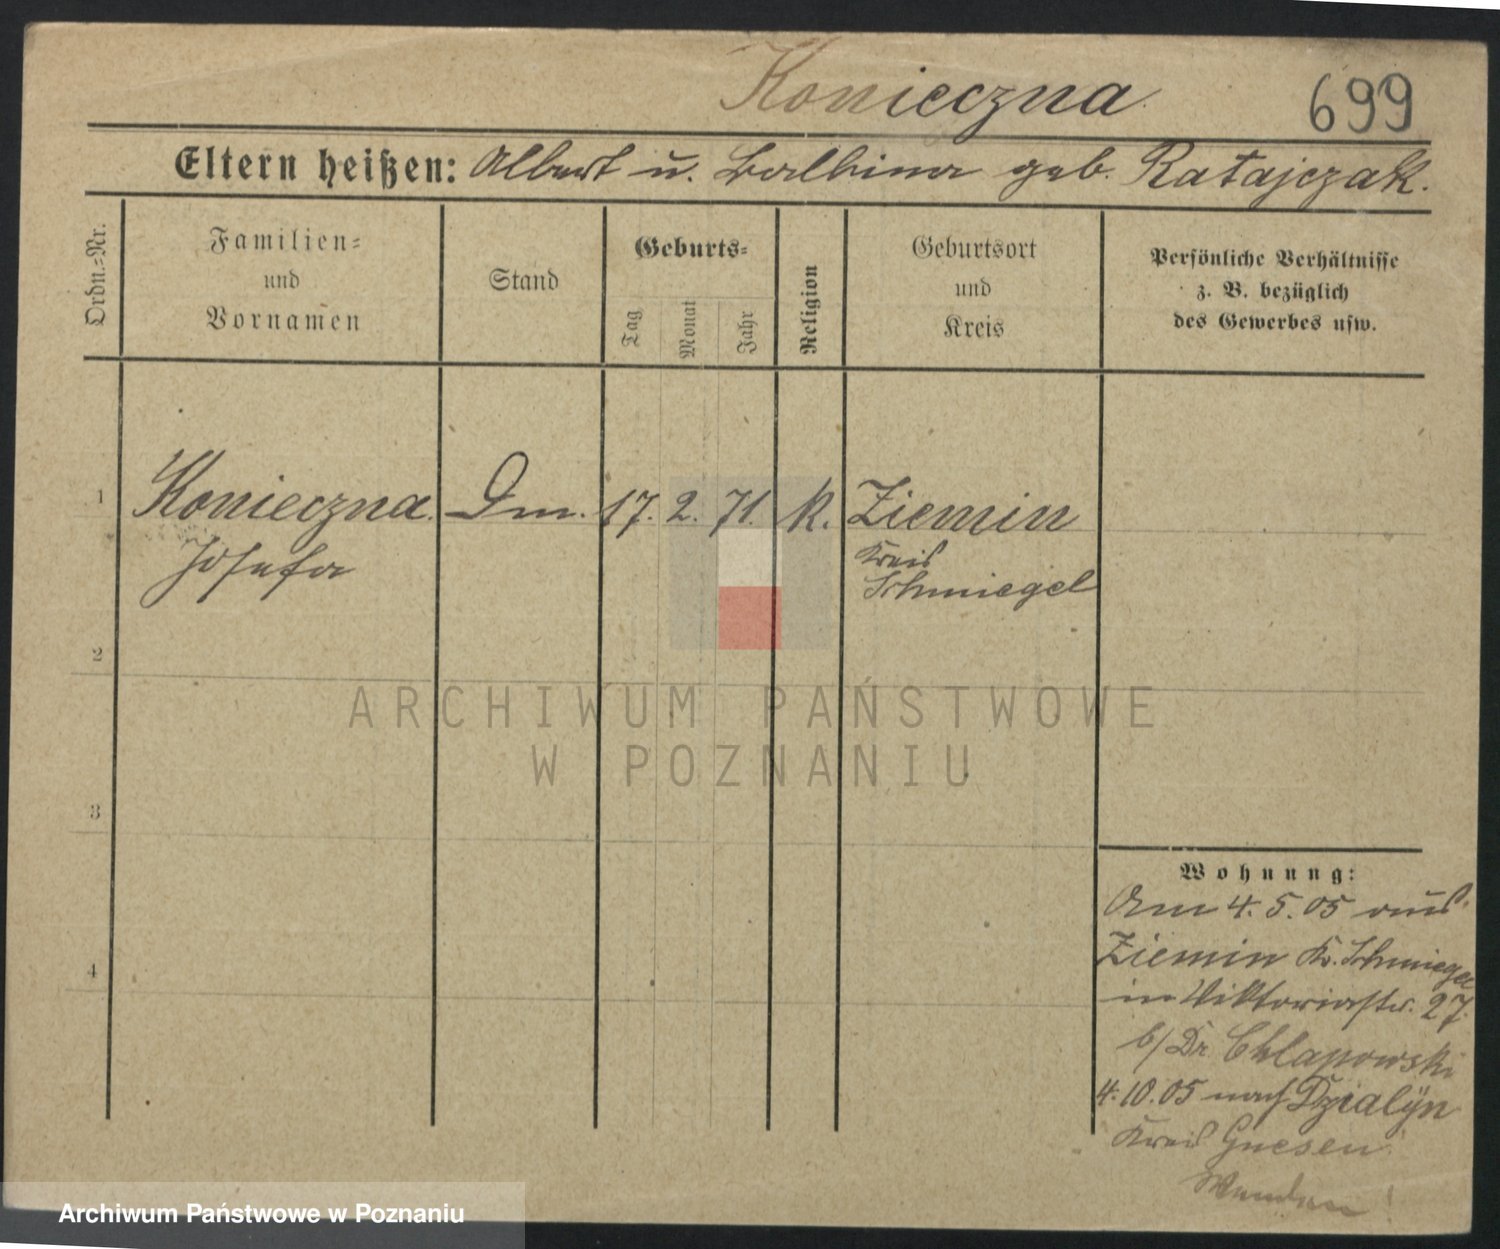 Konieczna
699
Eltern heißen: Albert u. Balbina geb. Ratajczak.
Ordn.-Nr.
Familien-
und
Vornamen
Stand
Geburts-
Tag
Monat
Jahr
Religion
Geburtsort
und
Kreis
Persönliche Verhältnisse
z. B. bezüglich
des Gewerbes usw.
1 Konieczna Dm. 17. 2. 71. k. Ziemin
Josefa
Kreis
Schmiegel
2
ARCHIWUM PAŃSTWOWE
W POZNANIU
3
Wohnung:
Am 4. 5. 05 aus
Ziemin Kr. Schmiegel
in Viktoriastr. 27.
b/ Dr. Chlapowski
4. 10. 05 nach Dzialÿn
Kreis Gnesen
4
Archiwum Państwowe w Poznaniu